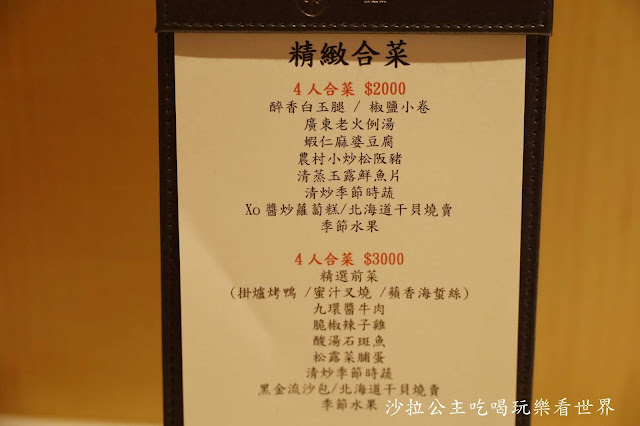 精緻合菜
4人合菜 $2000
醉香白玉腿 / 椒鹽小卷
廣東老火例湯
蝦仁麻婆豆腐
農村小炒松阪豬
清蒸玉露鮮魚片
清炒季節時蔬
Xo醬炒蘿蔔糕/北海道干貝燒賣
季節水果
4人合菜 $3000
精選前菜
(掛爐烤鴨 /蜜汁叉燒 /蘋香海蜇絲)
九環醬牛肉
脆椒辣子雞
酸湯石斑魚
松露菜脯蛋
清炒季節時蔬
黑金流沙包/北海道干貝燒賣
季節水果
沙拉公主吃喝玩樂看世界